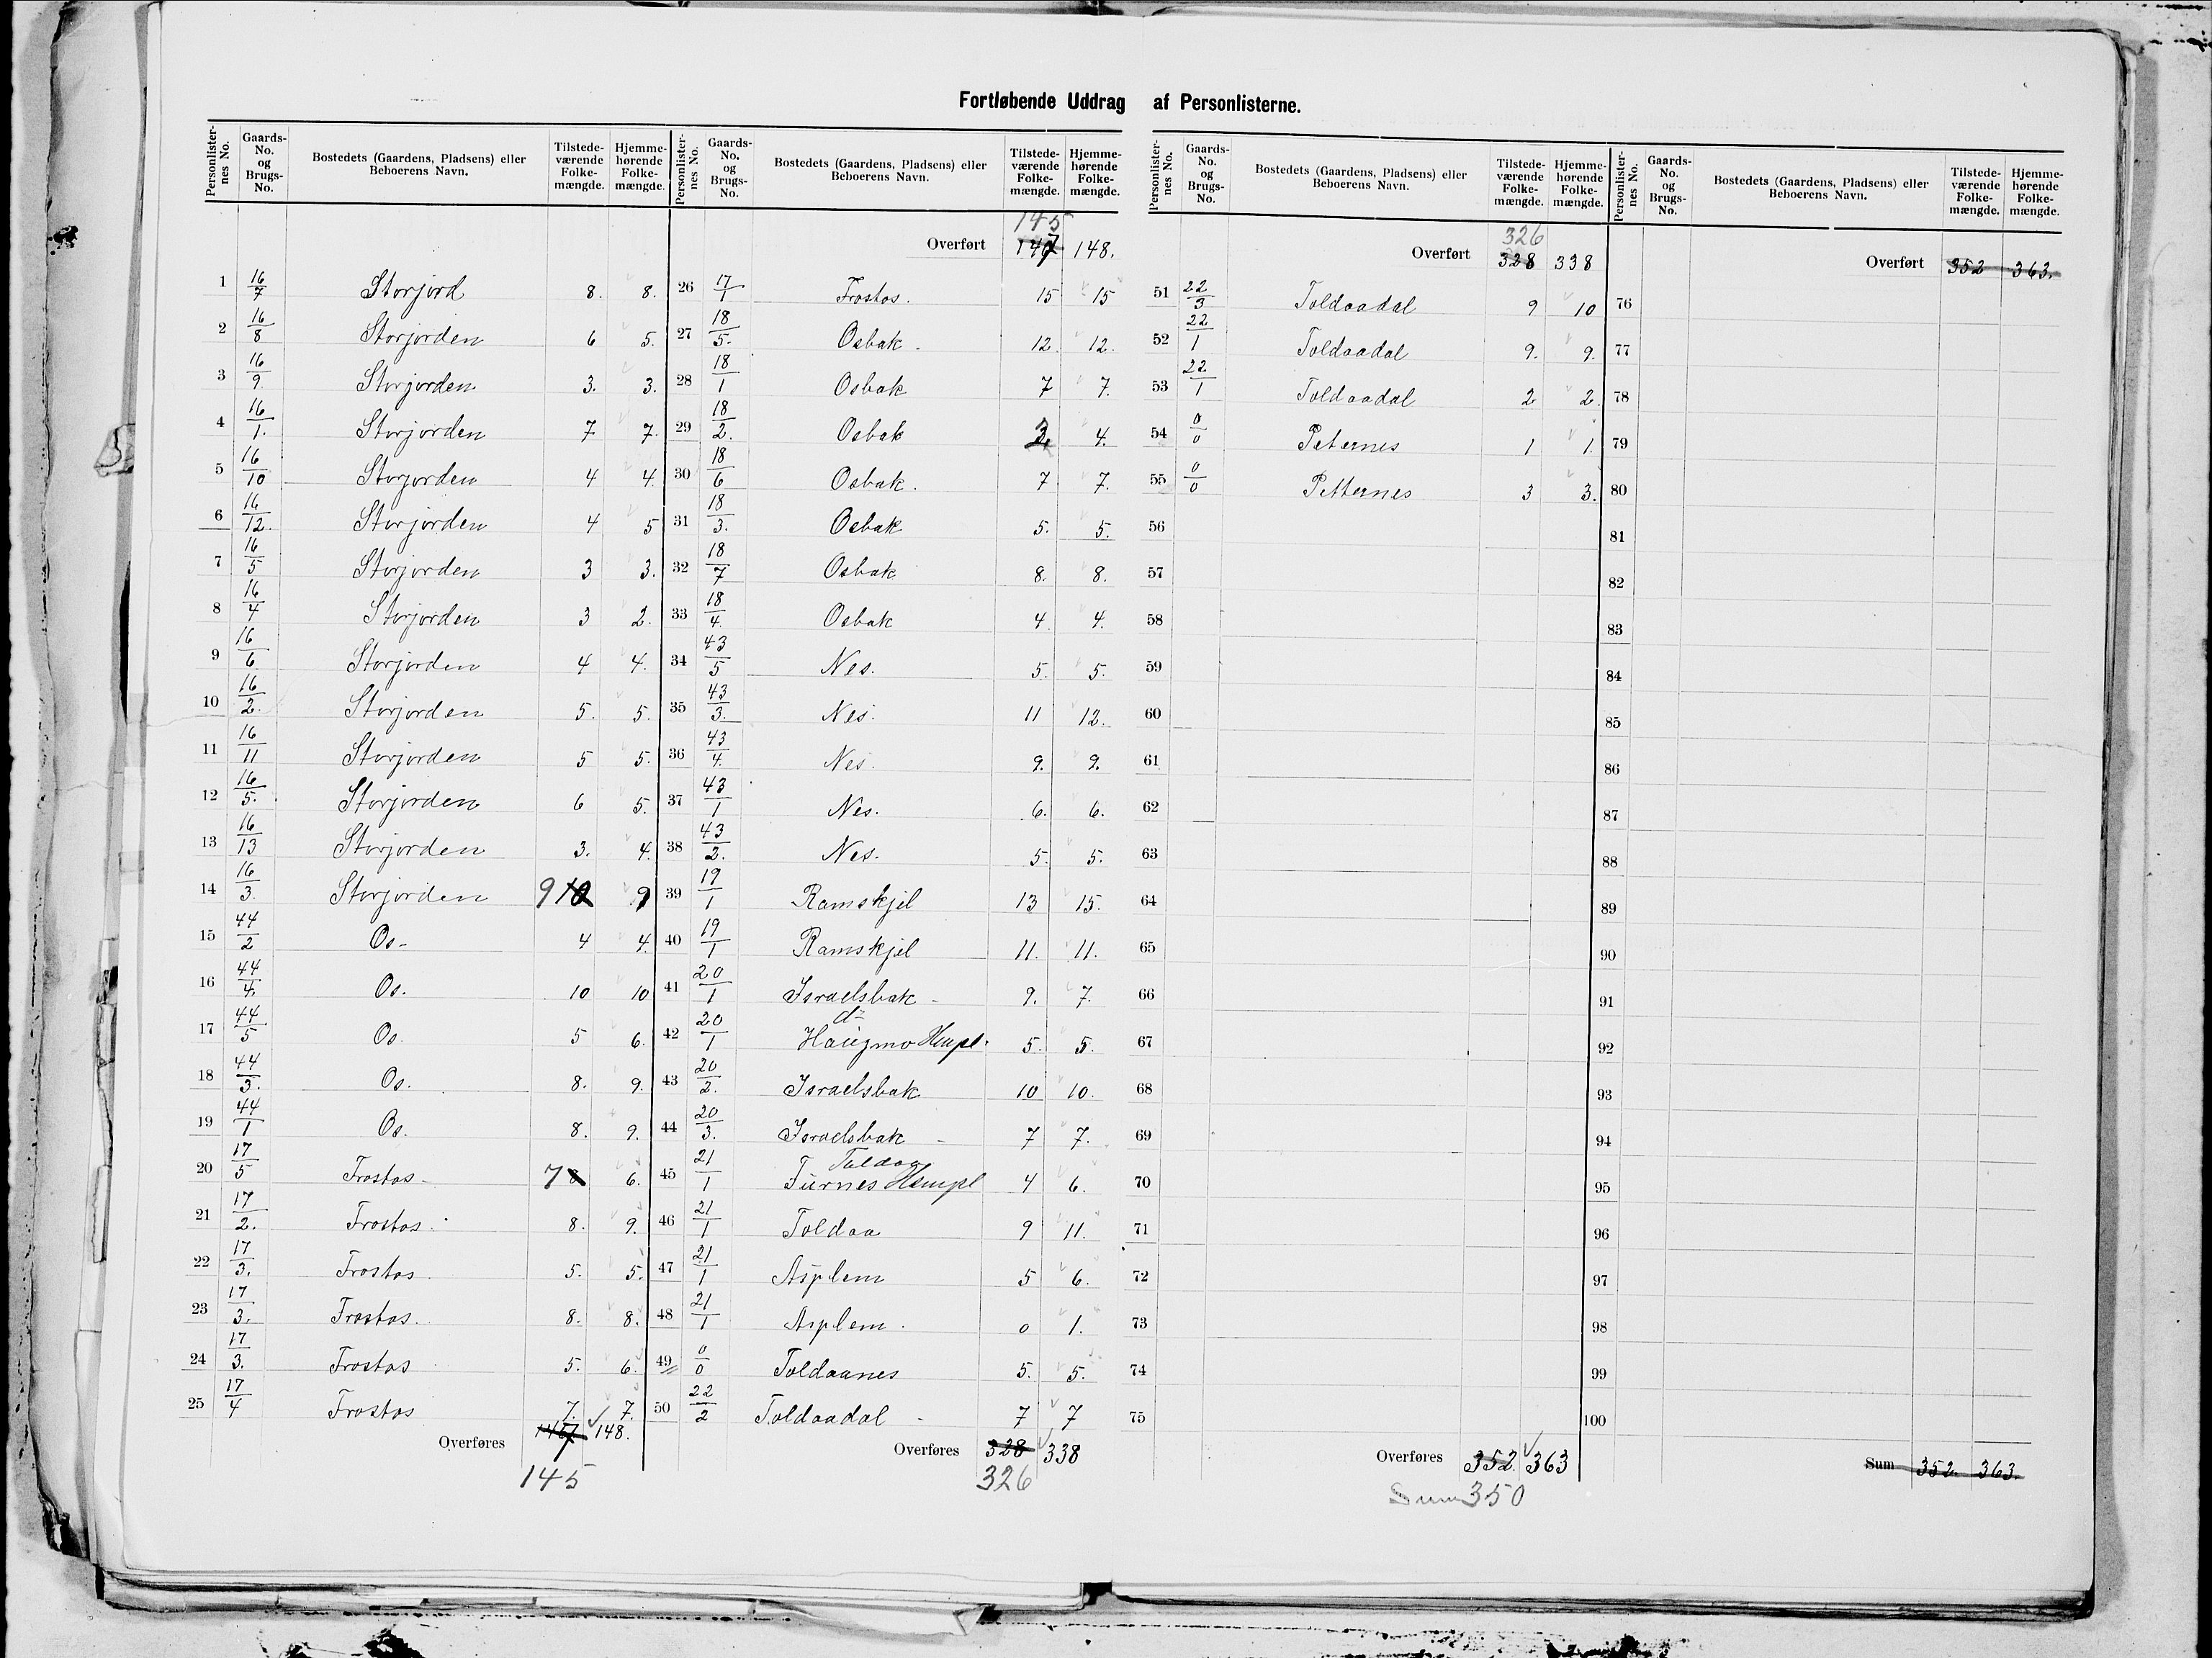 Fortløbende Uddrag af Personlisterne.
Personlisternes No. | Gaards-No. og Brugs-No. | Bostedets (Gaardens, Pladsens) eller Beboerens Navn. | Tilstedeværende Folkemængde. | Hjemmehørende Folkemængde.
1 16/7 Storjord 8. 8.
2 16/8 Storjorden 6 5.
3 16/9. Storjorden 3. 3.
4 16/1. Storjorden 7 7.
5 16/10 Storjorden 4 4.
6 16/12. Storjorden 4 5
7 16/5 Storjorden 3 3.
8 16/4 Storjorden 3 2.
9 16/6 Storjorden 4 4.
10 16/2. Storjorden 5. 5.
11 16/11 Storjorden 5 5.
12 16/5. Storjorden 6 5.
13 16/13 Storjorden 3. 4.
14 16/3. Storjorden 9 10 9
15 44/2 Os- 4 4.
16 44/4. Os. 10 10
17 44/5 Os. 5 6.
18 44/3. Os. 8. 9.
19 44/1 Os. 8. 9.
20 17/5 Frostos- 7 8 6.
21 17/2. Frostos. 8. 9.
22 17/3. Frostos. 5. 5.
23 17/3. Frostos. 8. 8.
24 17/3. Frostos 5. 6.
25 17/4 Frostos 7. 7.
Overføres 147 148.
145
Personlisternes No. | Gaards-No. og Brugs-No. | Bostedets (Gaardens, Pladsens) eller Beboerens Navn. | Tilstedeværende Folkemængde. | Hjemmehørende Folkemængde.
145
Overført 147 148.
26 17/1 Frostos. 15 15
27 18/5. Osbak. 12. 12.
28 18/1 Osbak 7 7.
29 18/2. Osbak 3. 4.
30 18/6 Osbak. 7 7.
31 18/3. Osbak 5. 5.
32 18/7 Osbak 8. 8.
33 18/4. Osbak 4 4.
34 43/5 Nes. 5. 5.
35 43/3. Nes. 11 12.
36 43/4. Nes. 9. 9.
37 43/1 Nes. 6. 6.
38 43/2. Nes. 5. 5.
39 19/1 Ramskjel 13 15.
40 19/1 Ramskjel 11. 11.
41 20/1 Israelsbak - 9. 7.
do
42 20/1 Haugmo Hmpl. 5. 5.
43 20/2. Israelsbak 10 10.
44 20/3. Israelsbak - 7 7.
Toldaa
45 21/1 Furnes Hsmpl 4 6.
46 21/1 Toldaa 9 11.
47 21/1 Asplem 5 6.
48 21/1 Asplem. 0 1.
49 0/0 Toldaanes 5. 5.
50 22/2 Toldaadal - 7 7
Overføres 328 338
326
Personlisternes No. | Gaards-No. og Brugs-No. | Bostedets (Gaardens, Pladsens) eller Beboerens Navn. | Tilstedeværende Folkemængde. | Hjemmehørende Folkemængde.
326
Overført 328 338
51 22/3 Toldaadal 9 10
52 22/1 Toldaadal 9. 9.
53 22/1 Toldaadal 2. 2.
54 0/0 Peternes 1 1.
55 0/0 Petternes 3 3.
56
57
58
59
60
61
62
63
64
65
66
67
68
69
70
71
72
73
74
75
Overføres 352. 363
Sum 350
Personlisternes No. | Gaards-No. og Brugs-No. | Bostedets (Gaardens, Pladsens) eller Beboerens Navn. | Tilstedeværende Folkemængde. | Hjemmehørende Folkemængde.
Overført 352 363.
76
77
78
79
80
81
82
83
84
85
86
87
88
89
90
91
92
93
94
95
96
97
98
99
100
Sum 352. 363.